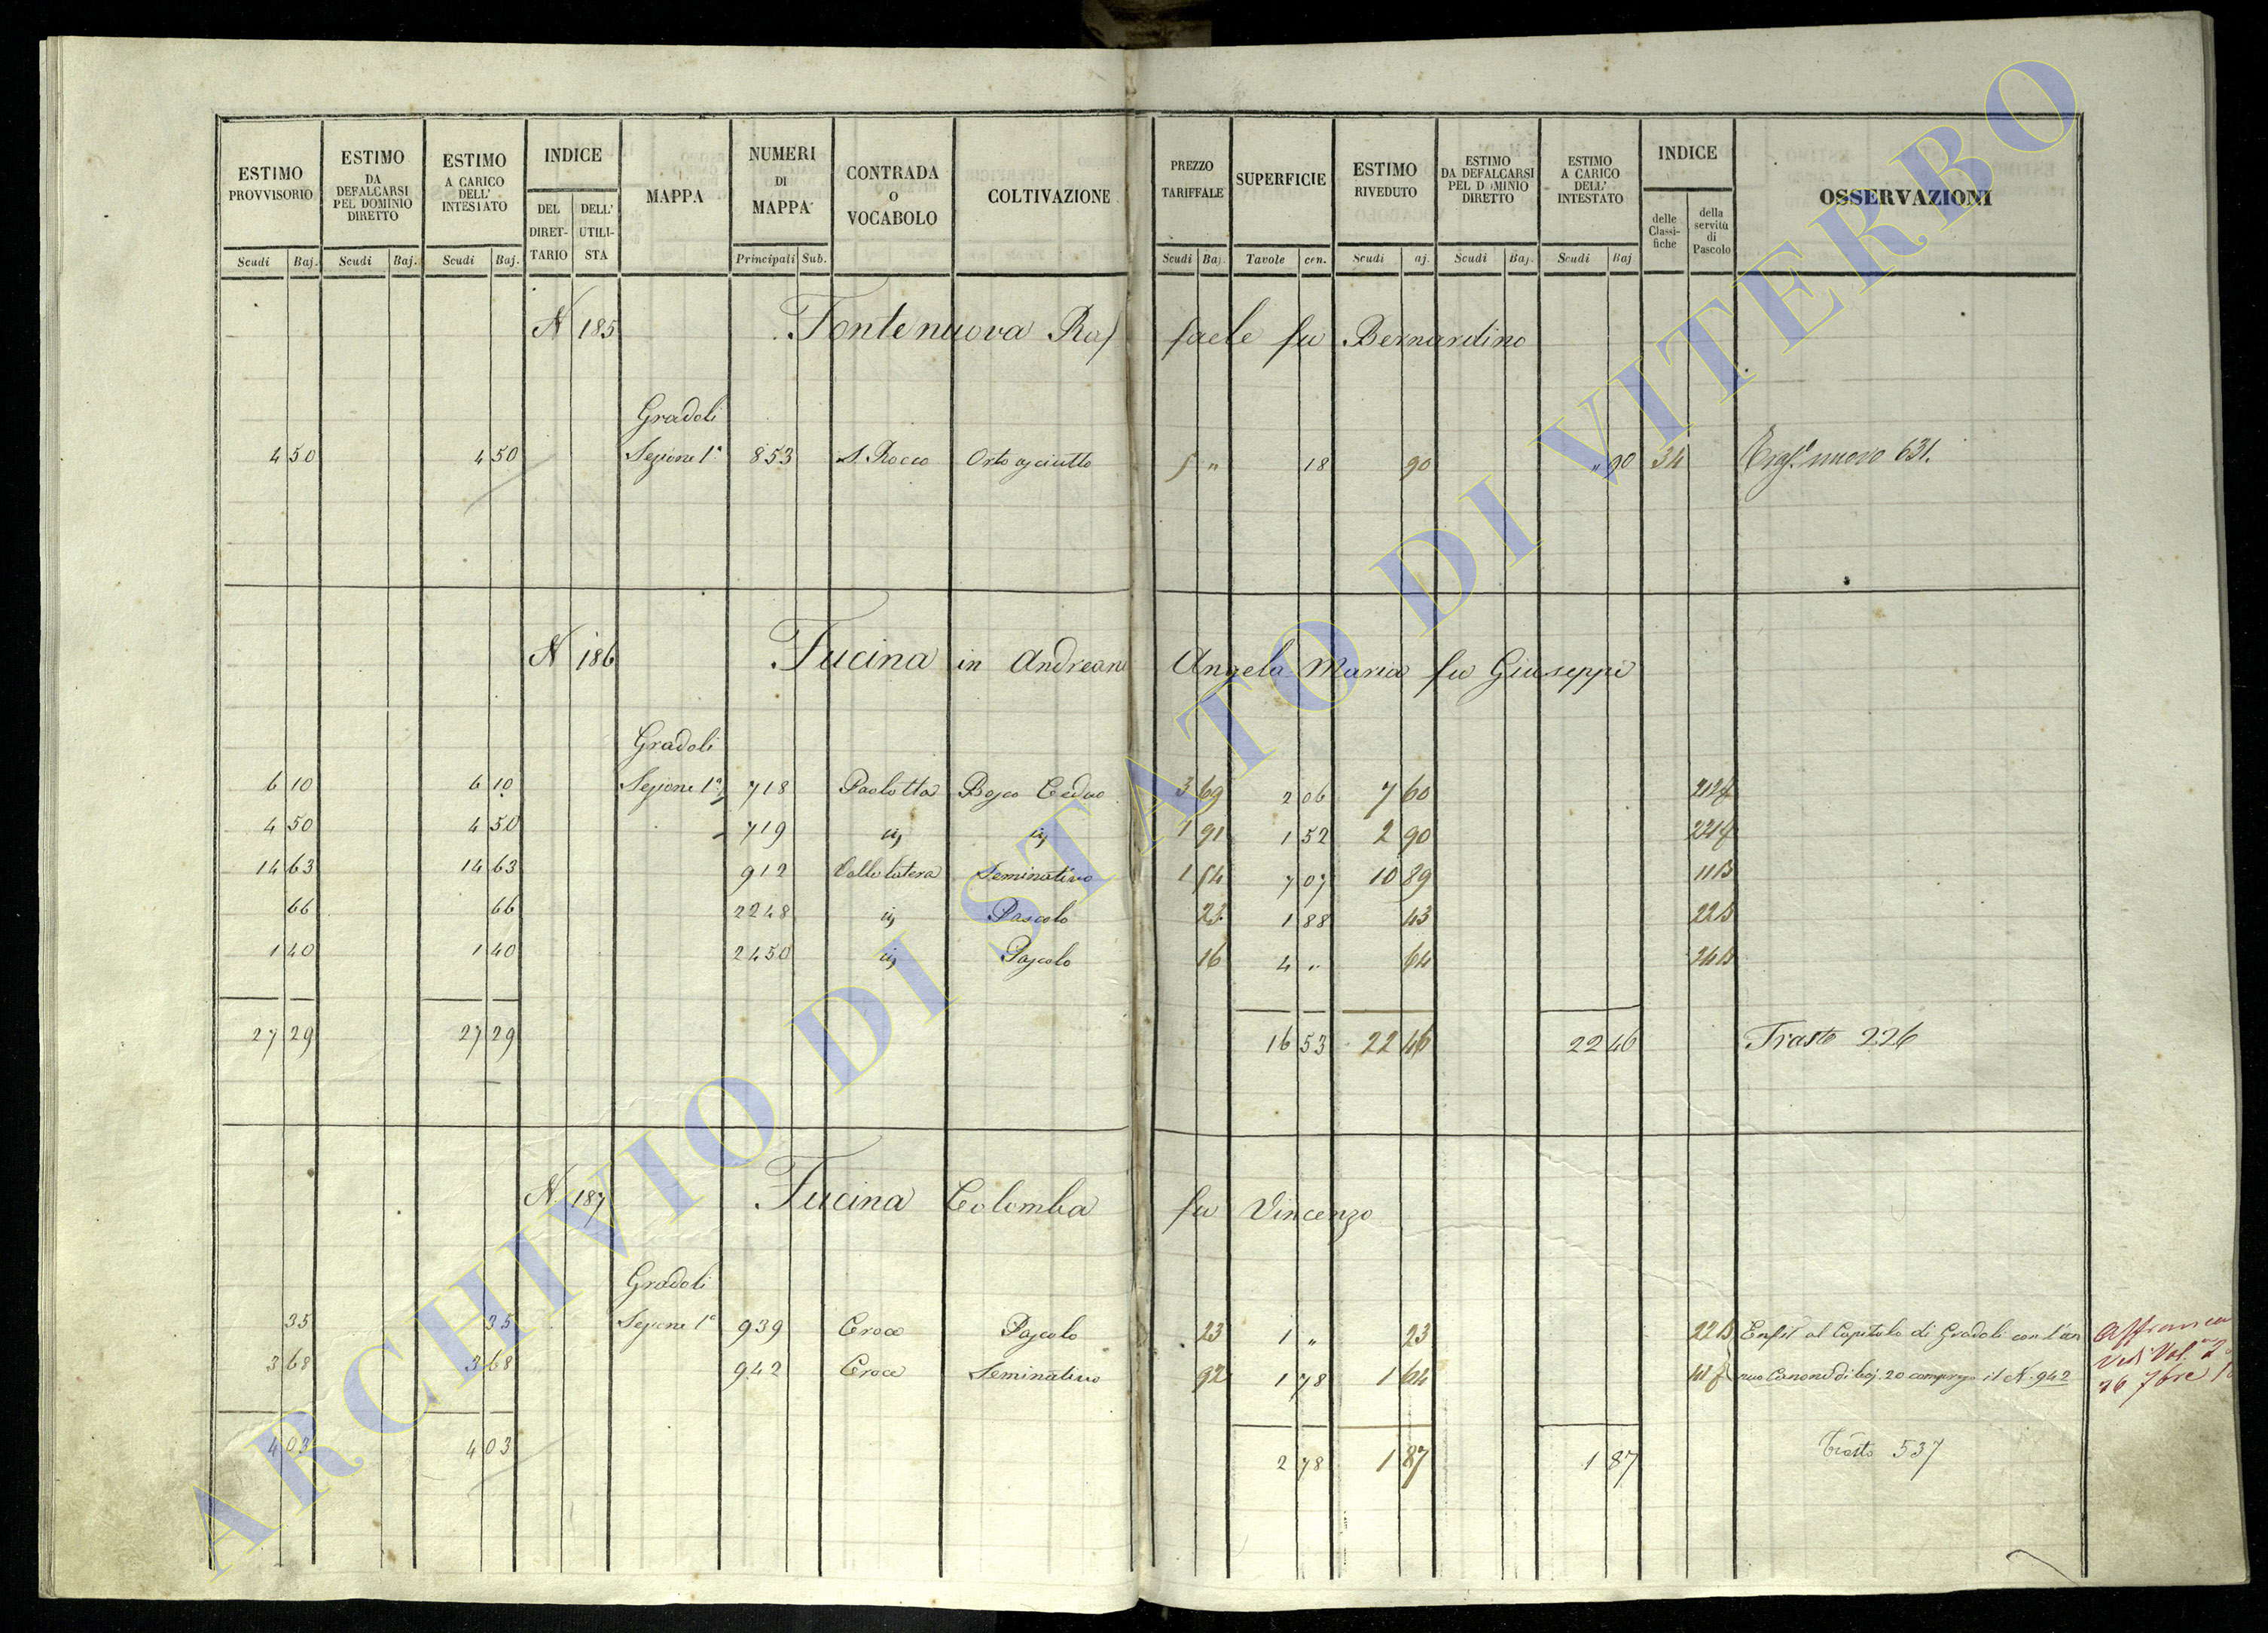 ESTIMO PROVVISORIO ESTIMO DA DEFALCARSI PEL DOMINIO DIRETTO ESTIMO A CARICO DELL' INTESTATO INDICE DEL DIRETTARIO DELL' UTILISTA MAPPA NUMERI DI MAPPA CONTRADA O VOCABOLO COLTIVAZIONE PREZZO TARIFFALE SUPERFICIE ESTIMO RIVEDUTO ESTIMO DA DEFALCARSI PEL DOMINIO DIRETTO ESTIMO A CARICO DELL' INTESTATO INDICE delle Classifiche della servitù di Pascolo OSSERVAZIONI
Scudi Baj. Scudi Baj. Scudi Baj. Principali Sub. Scudi Baj. Tavole cen. Scudi aj. Scudi Baj. Scudi Baj
N 185 Fontenuova Raffaele fu Bernardino
Gradoli
4 50 4 50 Sezione 1ª 853 S. Rocco Orto asciutto 5 " 18 90 " 90 34 Trasto nuovo 631.
N 186 Fucina in Andreani Angela Maria fu Giuseppe
Gradoli
6 10 6 10 Sezione 1ª 718 Paolotta Bosco Ceduo 3 69 2 06 7 60
4 50 4 50 719 1 91 1 52 2 90
14 63 14 63 912 Valle latera Seminativo 1 54 7 07 10 89 11B
66 66 2248 Pascolo 23 1 88 43 22B
1 40 1 40 2450 Pascolo 16 4 " 64 24B
27 29 27 29 16 53 22 46 22 46 Trasto 226
N 187 Fucina Colomba fu Vincenzo
Gradoli
35 35 Sezione 1ª 939 Croce Pascolo 23 1 " 23 22B Enfit al Capitolo di Gradoli con l'an
3 68 3 68 942 Croce Seminativo 92 1 78 1 64 nuo Canone di baj. 20 compreso il N. 942
4 03 4 03 2 78 1 87 1 87 Trasto 537
Vedi Vol.
26 7bre
ARCHIVIO DI STATO DI VITERBO